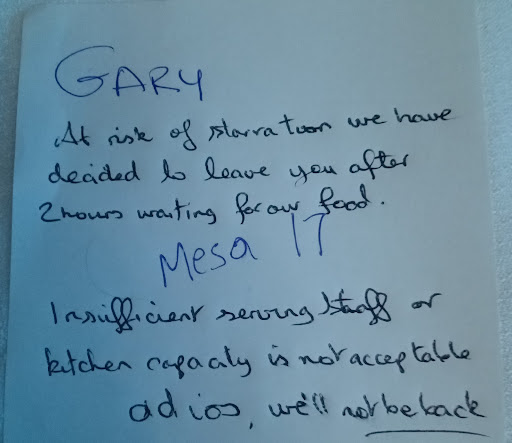 GARY
At risk of starvation we have
decided to leave you after
2 hours waiting for our food.
Mesa 17
Insufficient serving staff or
kitchen capacity is not acceptable
adios, we'll not be back